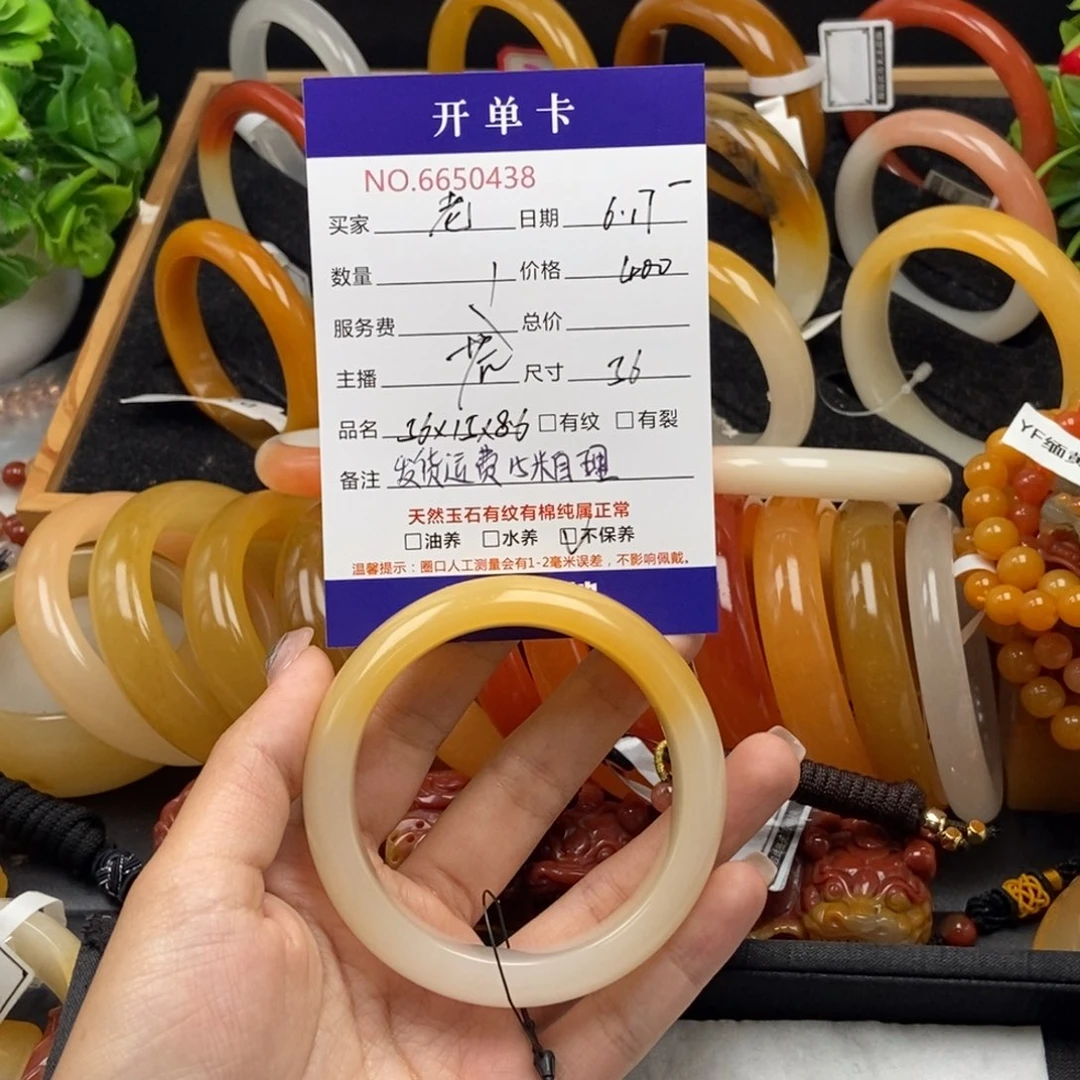 开单卡
NO.6650438
买家 老 日期 6.17
数量 1 价格 400
服务费 总价
主播 尺寸 56
品名 16×11×8.6 □有纹 □有裂
备注 发货运费15米自理
天然玉石有纹有棉纯属正常
□油养 □水养 □不保养
温馨提示：圈口人工测量会有1-2毫米误差，不影响佩戴。
YF缅黄